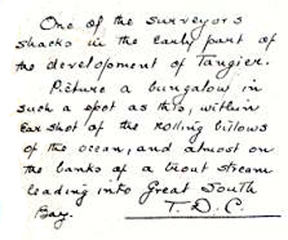 One of the surveyors
shacks in the early part of
the development of Tangier.
Picture a bungalow in
such a spot as this, within
ear shot of the rolling billows
of the ocean, and almost on
the banks of a trout stream
leading into Great South
Bay. T. D. C.